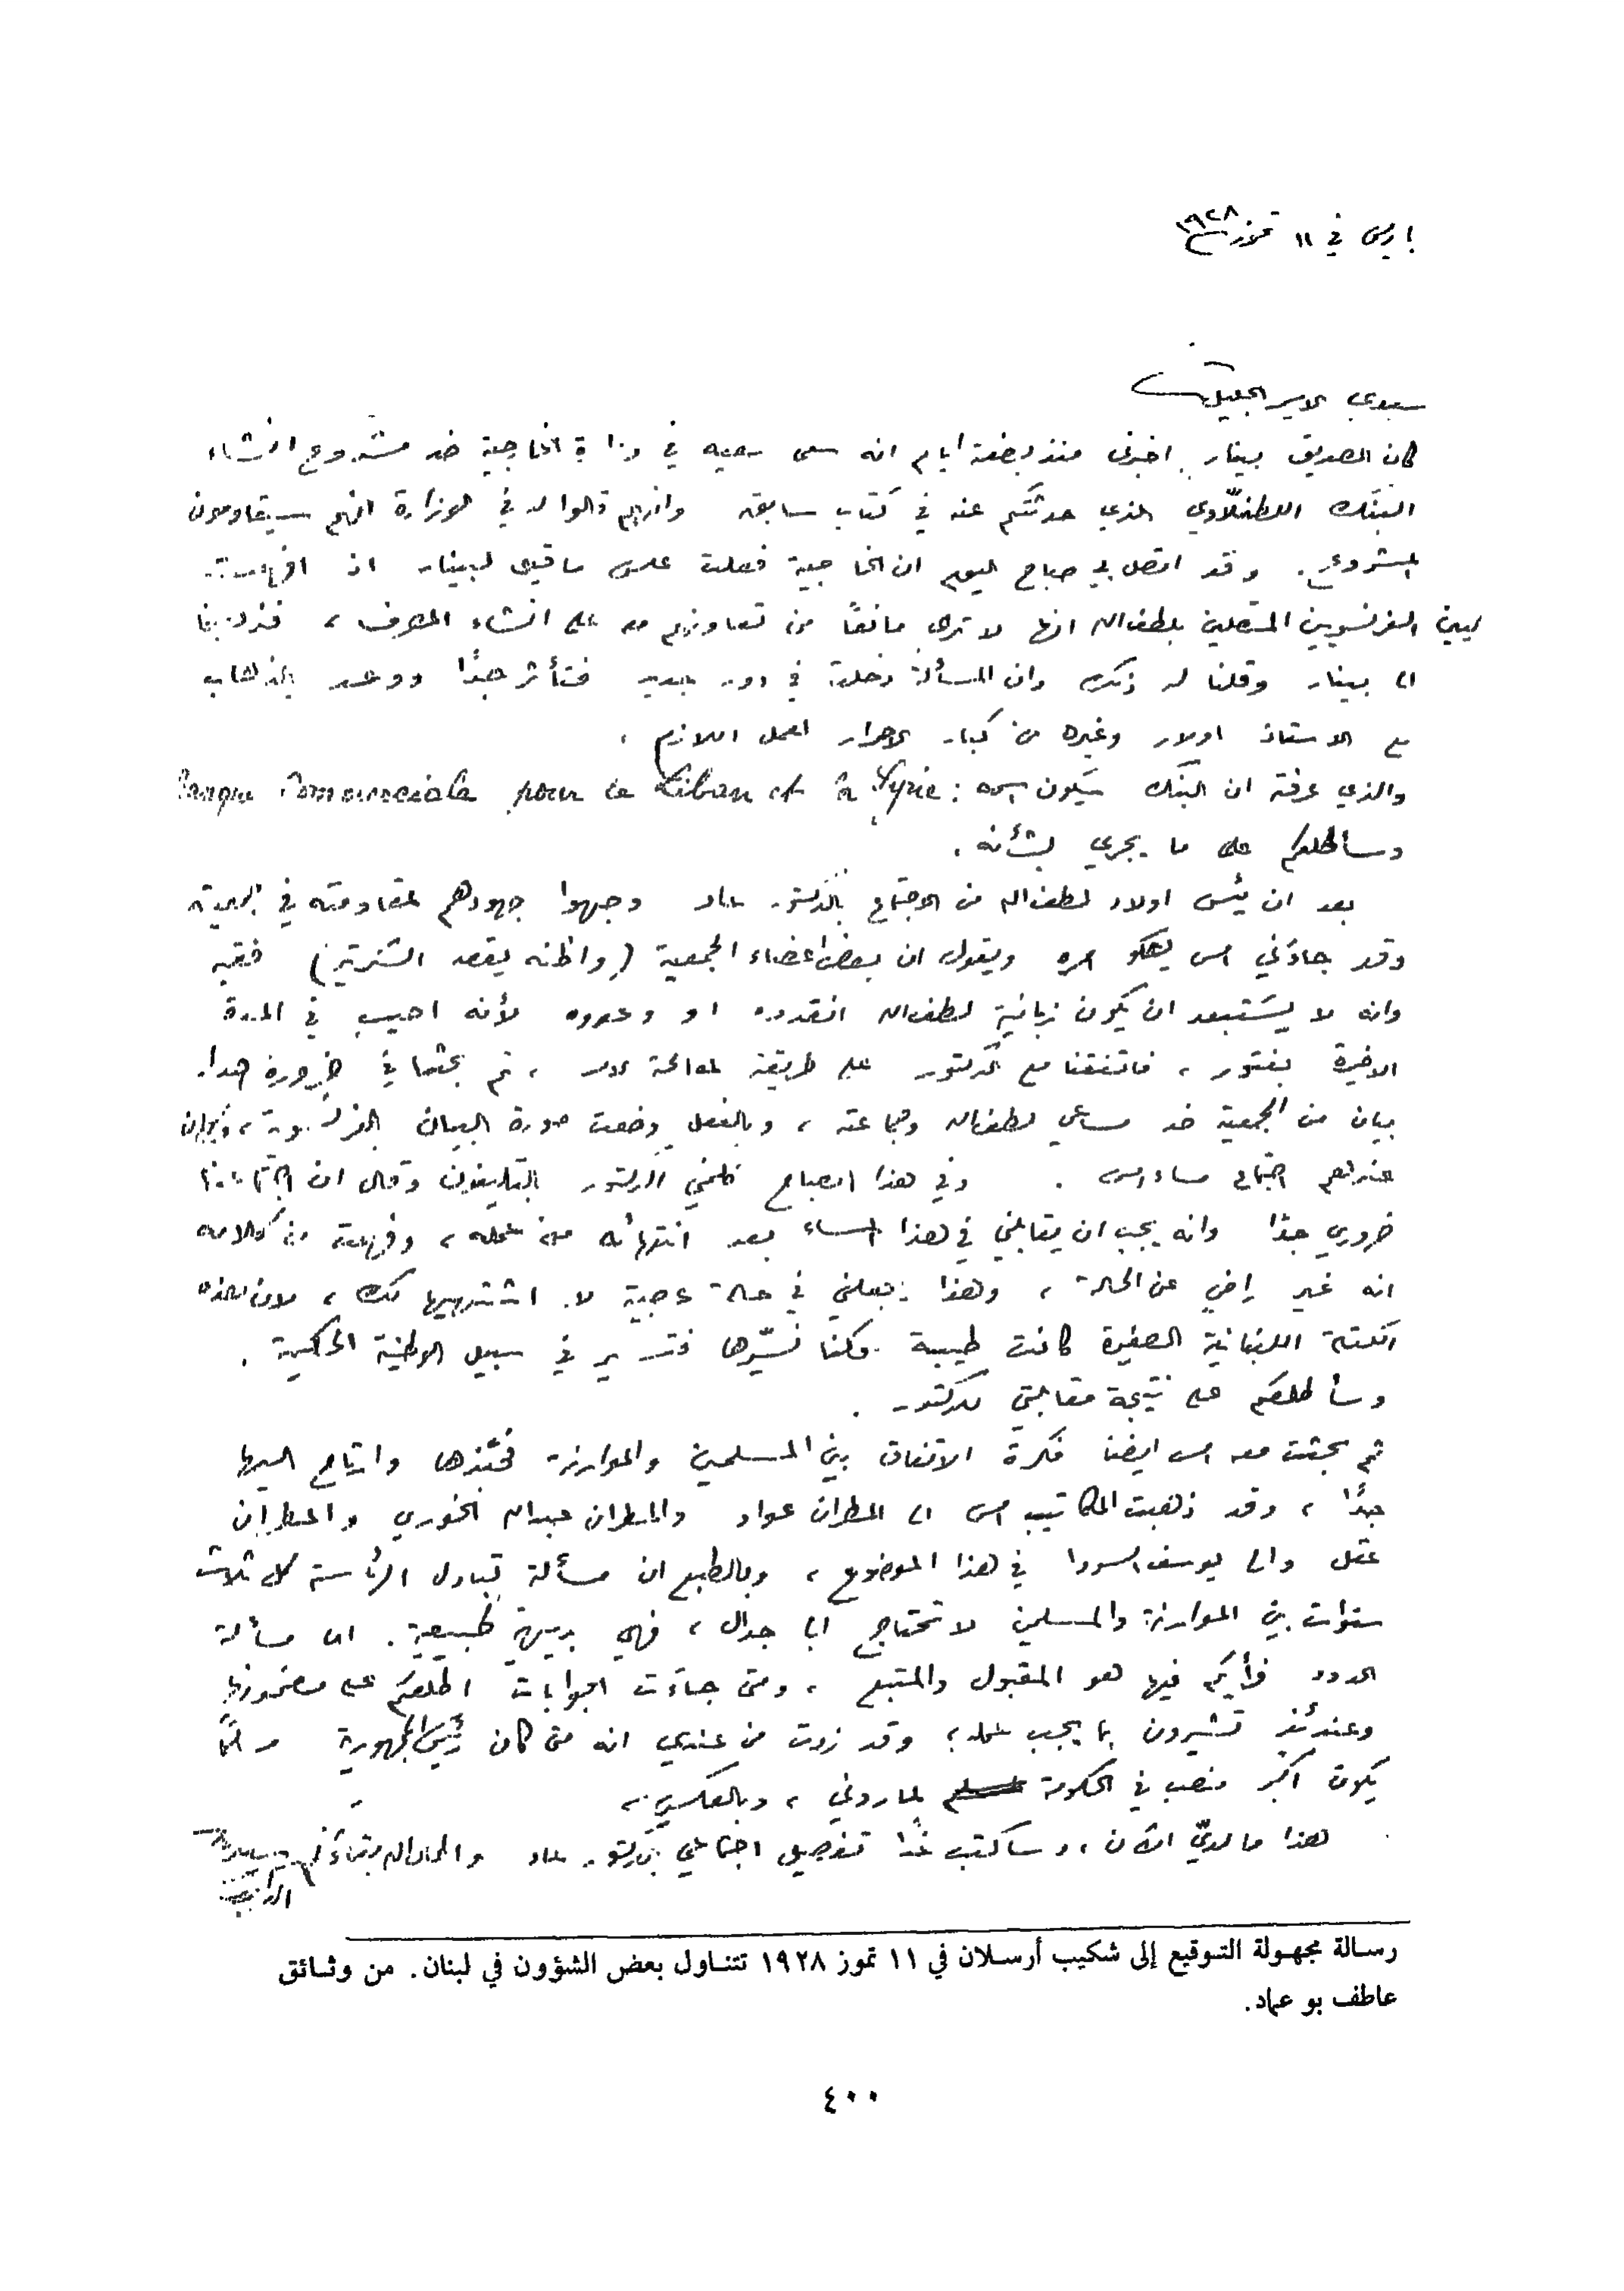 باريس في ١١ تموز ١٩٢٨
سيدي الامير الجليل
كان الصديق بينار اخبرني منذ بضعة ايام انه سعى سعيه في وزارة الخارجية ضد مشروع انشاء
البنك اللطفلاوي الذي حدثتكم عنه في كتاب سابق وانهم قالوا له في الوزارة انهم سيقاومون
المشروع. وقد اتصل بي صباح اليوم ان الخارجية فعلت عكس ما قيل لبينار اذ افهمت
الفرنسويين المتصلين بلطف الله انها لا ترى مانعاً من تعاونهم معه على انشاء المصرف، فذهبنا
الى بينار وقلنا له ذلك وان المسألة دخلت في دور جديد فتأثر جدًا ووعد بالذهاب
مع الاستاذ اولار وغيره من كبار الاحرار لعمل اللازم.
والذي عرفته ان البنك سيكون اسمه: Banque Commerciale pour le Liban et la Syrie
وسأطلعكم على ما يجري بشأنه.
بعد ان يئس اولاد لطف الله من الاجتماع بالدكتور عاد وجهوا جهودهم لمقاومته في الجمعية
وقد جاءني امس يشكو امره ويقول ان بعض اعضاء الجمعية (واظنه يقصد الشرتي) فقير
وانه لا يستبعد ان يكون زبانية لطف الله انقدوه او وعدوه لأنه اجيب في المدة
الاخيرة بفتور، فاتفقنا مع الدكتور على طريقة لمعالجة الامر، ثم بحثنا في ضرورة اصدار
بيان من الجمعية ضد مساعي لطف الله وجماعته، وبالفعل وضعت صورة البيان بالفرنسوية، وكان
عندهم اجتماع مساء امس. وفي هذا الصباح كلمني الدكتور بالتليفون وقال ان اجتماعنا
ضروري جدًا وانه يجب ان يقابلني في هذا المساء بعد انتهائه من عمله، وفهمت من كلامه
انه غير راضٍ عن الحالة، وهذا يجعلني في حالة عصبية لا اشتهيها لك، لان هذه
الكتلة اللبنانية الصغيرة كانت طيبة وكنا نسيّرها فتسير في سبيل الوطنية الحكيمة.
وسأطلعكم على نتيجة مقابلتي للدكتور.
ثم بحثت معه امس ايضا فكرة الاتفاق بين المسلمين والموارنة فحبّذها وارتاح اليها
جدًا، وقد ذهبت المكاتيب امس الى المطران عواد والمطران عبدالله الخوري والمطران
عقل والى يوسف السودا في هذا الموضوع، وبالطبع ان مسألة تبادل الرئاسة كل ثلاث
سنوات بين الموارنة والمسلمين لا تحتاج الى جدال، فهي بديهية طبيعية. اما مسألة
الحدود فرأيكم فيها هو المقبول والمتبع، ومتى جاءت الجوابات اطلعكم على مضمونها
وعندئذٍ تشيرون بما يجب عمله، وقد زدت من عندي انه متى كان رئيس الجمهورية مسلمًا
يكون اكبر منصب في الحكومة لماروني، وبالعكس.
هذا ما لديّ الآن، وساكتب غدًا تفصيل اجتماعي بالدكتور عاد
رسالة مجهولة التوقيع إلى شكيب أرسلان في ١١ تموز ١٩٢٨ تتناول بعض الشؤون في لبنان. من وثائق
عاطف بو عماد.
٤٠٠